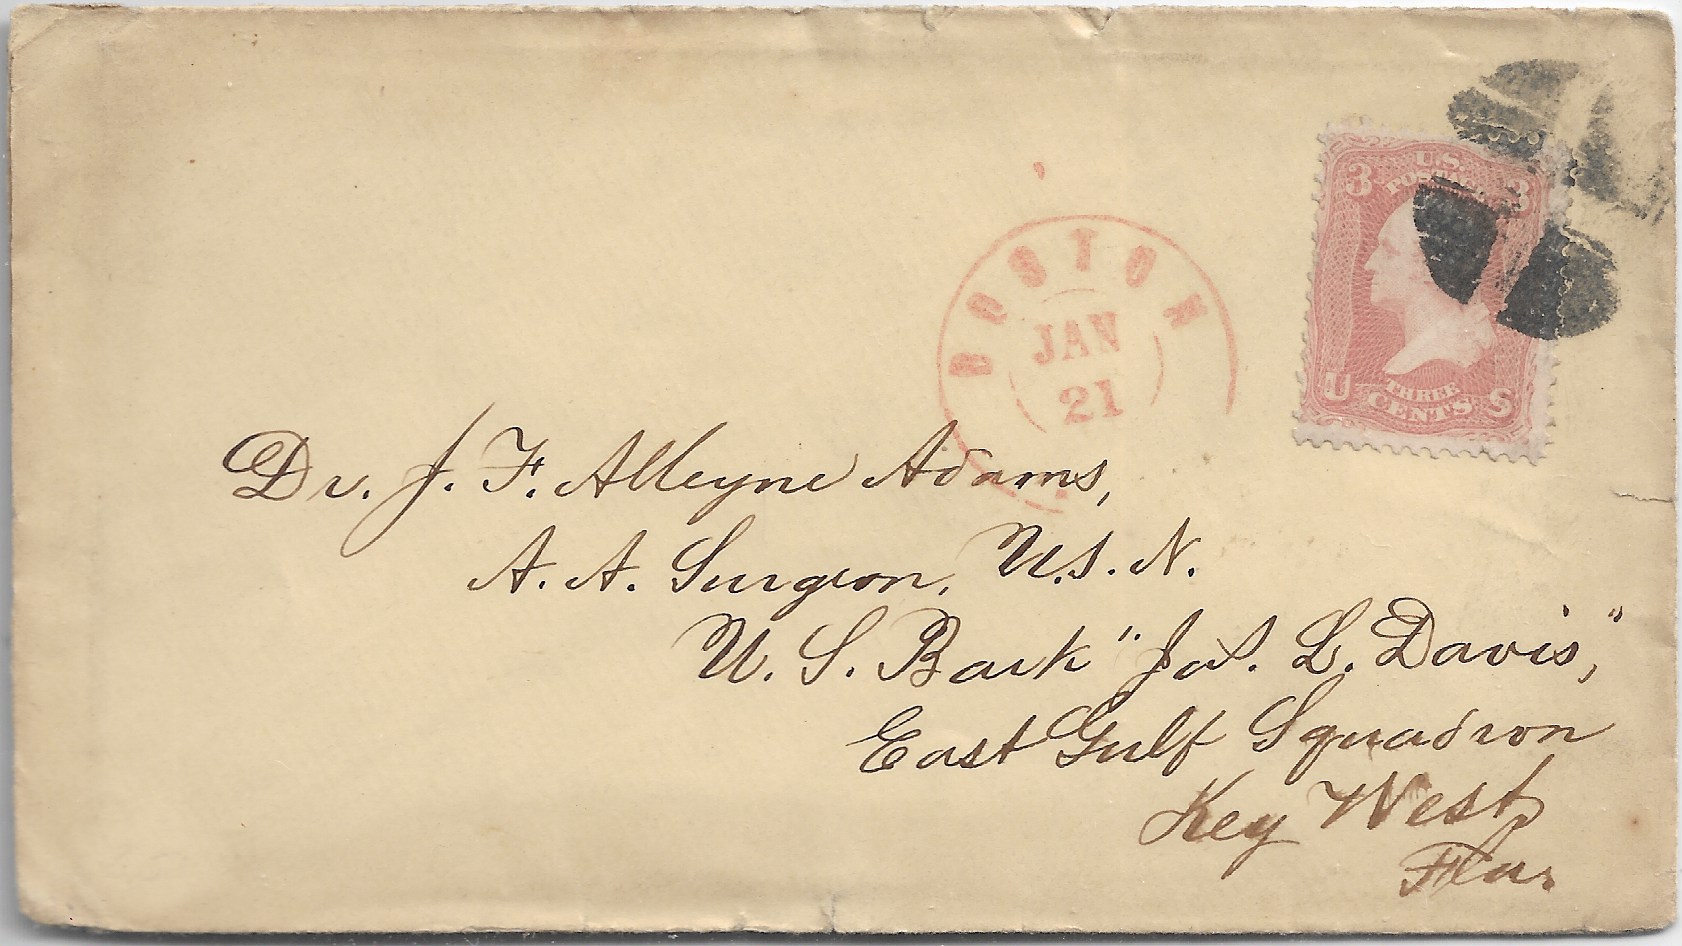 U.S.
POSTAGE
3 3
BOSTON
JAN
21
U THREE S
CENTS
Dr. J. F. Alleyne Adams,
A. A. Surgeon, U.S.N.
U. S. Bark "Jas. L. Davis,"
East Gulf Squadron
Key West,
Fla.